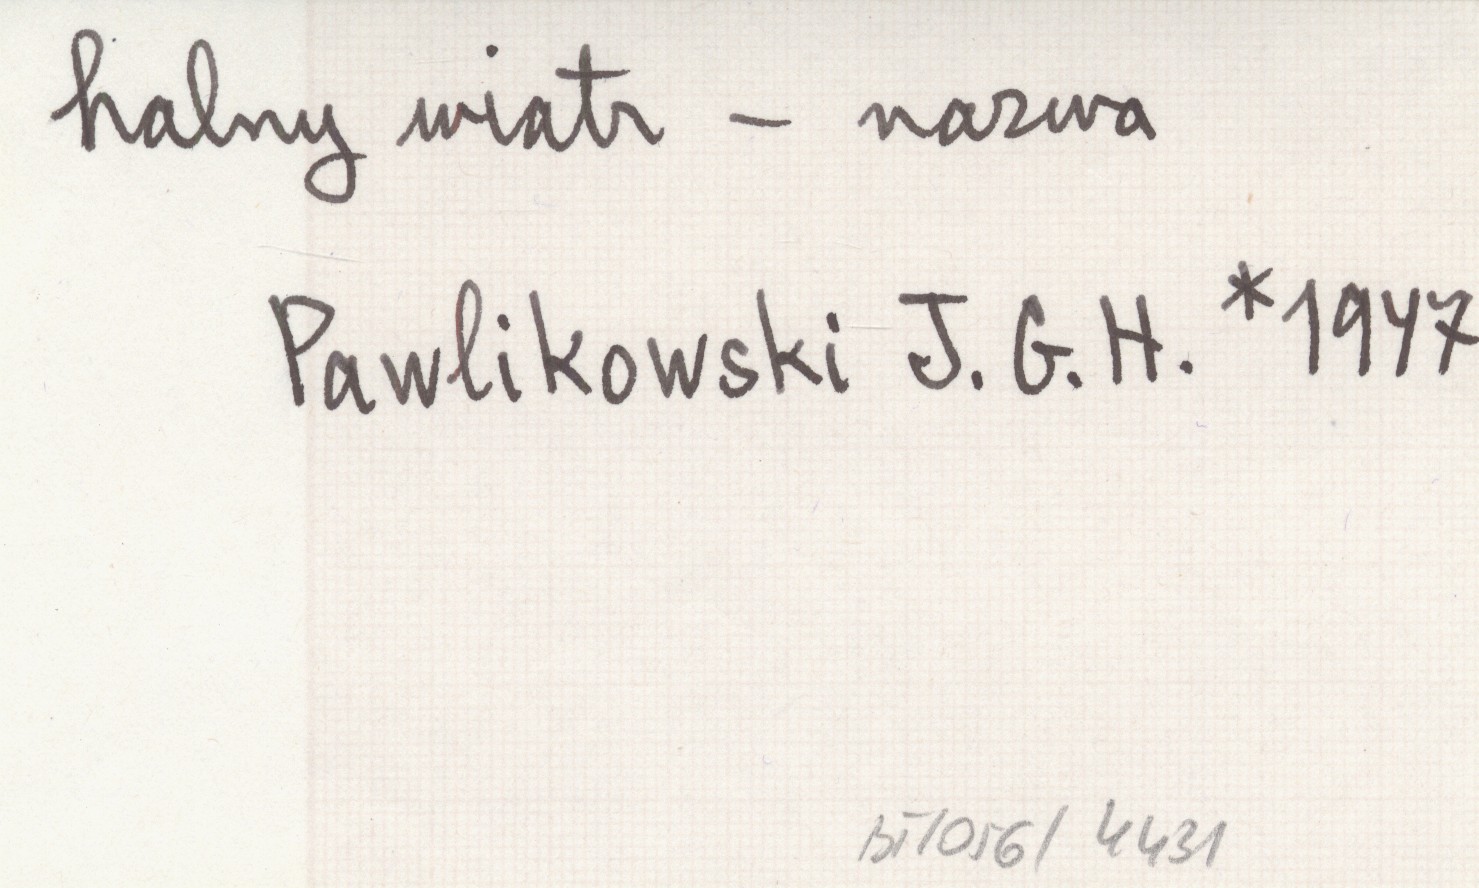 halny wiatr – nazwa
Pawlikowski J. G. H. *1947
BT/056/ 4431